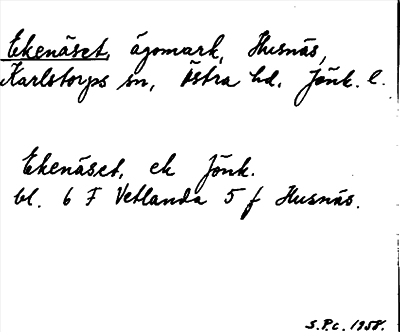 Ekenäset, ägomark, Husnäs,
Karlstorps sn, Östra hd. Jönk. l.
Ekenäset, ek Jönk.
bl. 6 F Vetlanda 5 f Husnäs.
S.P.c. 1958.